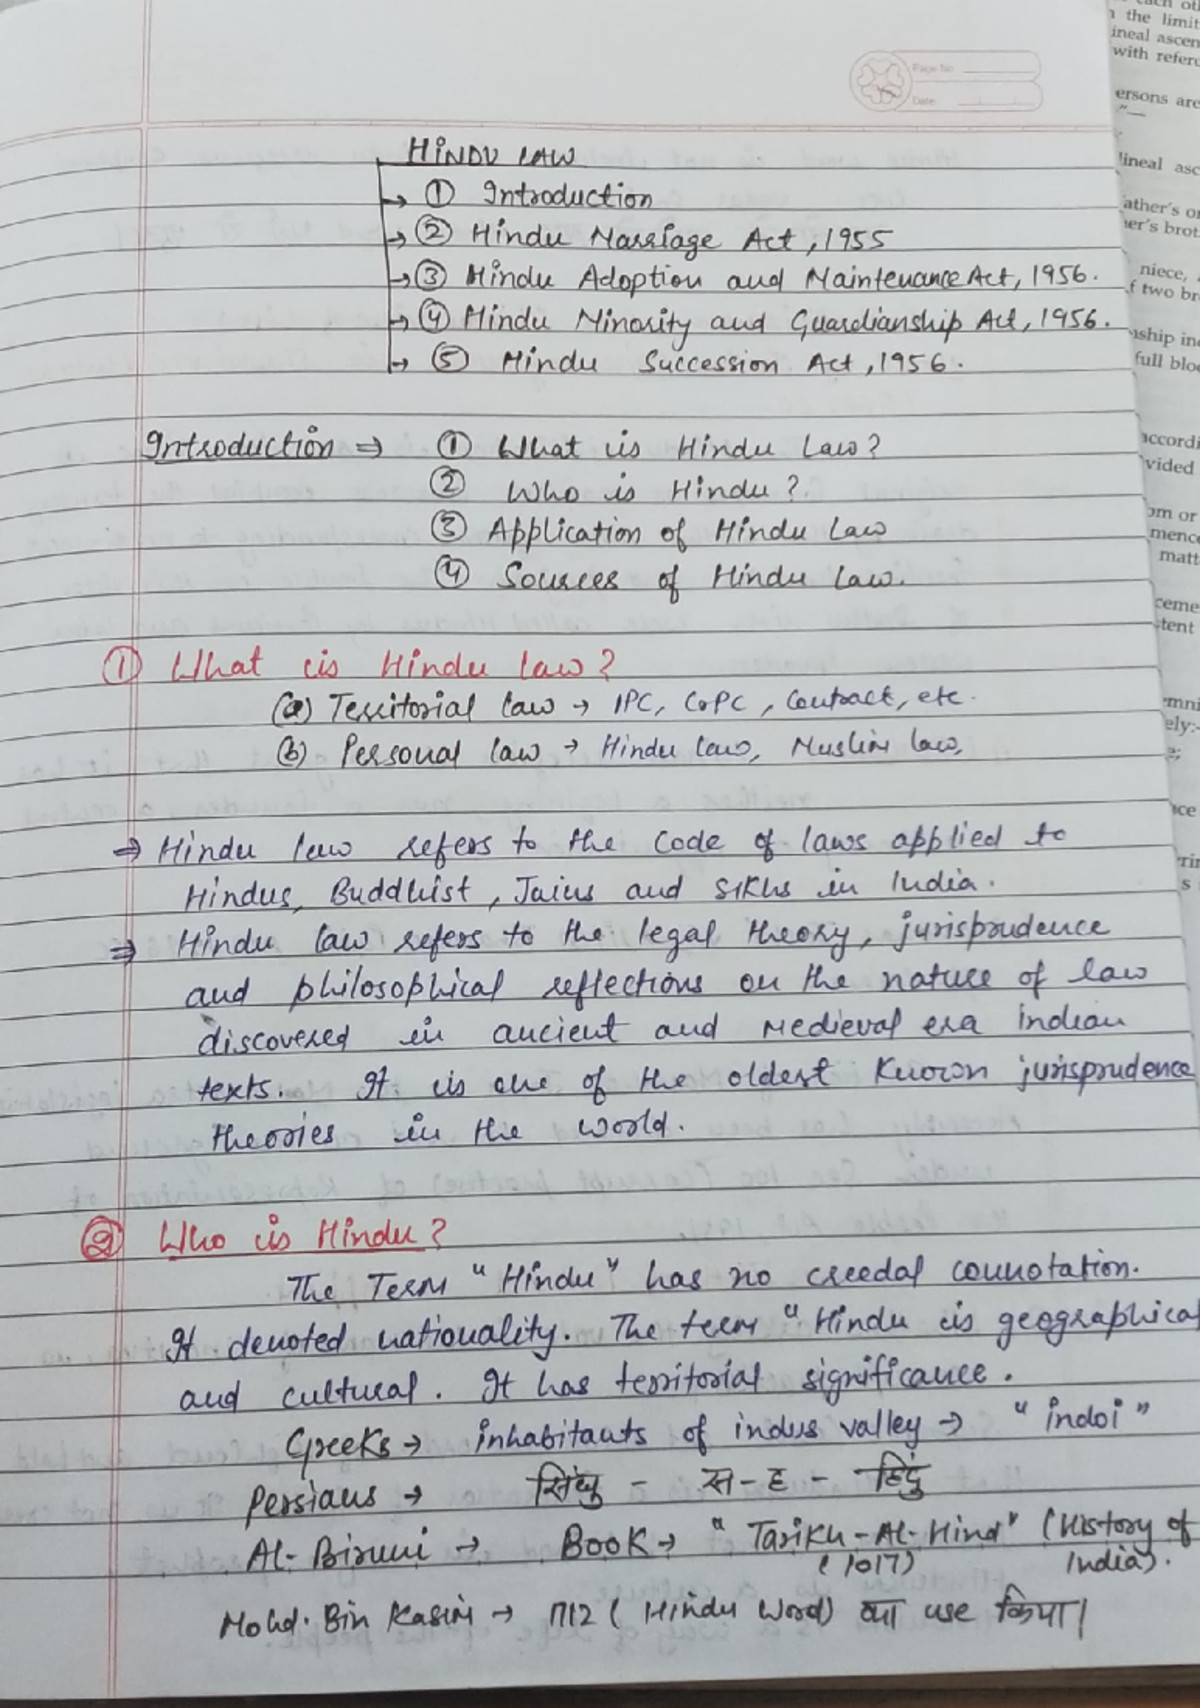 Page No
Date
HINDU LAW
→ ① Introduction
→ ② Hindu Marriage Act, 1955
→ ③ Hindu Adoption and Maintenance Act, 1956.
→ ④ Hindu Minority and Guardianship Act, 1956.
→ ⑤ Hindu Succession Act, 1956.
Introduction ⇒ ① What is Hindu Law?
② Who is Hindu?
③ Application of Hindu Law
④ Sources of Hindu Law.
① What is Hindu law?
(a) Territorial law → IPC, CrPC, Contract, etc.
(b) Personal law → Hindu law, Muslim law,
⇒ Hindu law refers to the code of laws applied to
Hindus, Buddhist, Jains and Sikhs in India.
⇒ Hindu law refers to the legal theory, jurisprudence
and philosophical reflections on the nature of law
discovered in ancient and Medieval era indian
texts. It is one of the oldest known jurisprudence
theories in the world.
② Who is Hindu?
The Term "Hindu" has no creedal connotation.
It denoted nationality. The term "Hindu is geographical
and cultural. It has territorial significance.
Greeks → inhabitants of indus valley → "indoi"
Persians → सिंधु - स-ह - हिंदु
Al-Biruni → Book → "Tarikh-Al-Hind" (History of
(1017) India).
Mohd. Bin Kasim → 712 (Hindu Word) का use किया।
the limit
ineal ascen
with refere
ersons are
lineal asc
ather's or
er's brot
niece,
f two br
ship in
full bloo
accordi
vided
om or
mence
matt
ceme
tent
mni
ely:-